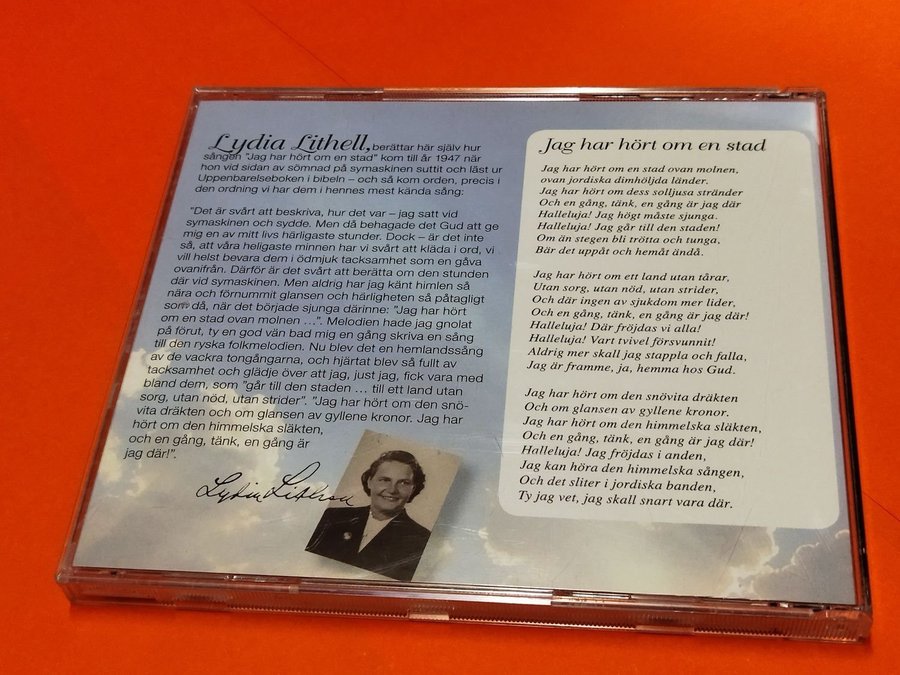 Lydia Lithell, berättar här själv hur
sången "Jag har hört om en stad" kom till år 1947 när
hon vid sidan av sömnad på symaskinen suttit och läst ur
Uppenbarelseboken i bibeln – och så kom orden, precis i
den ordning vi har dem i hennes mest kända sång:
"Det är svårt att beskriva, hur det var – jag satt vid
symaskinen och sydde. Men då behagade det Gud att ge
mig en av mitt livs härligaste stunder. Dock – är det inte
så, att våra heligaste minnen har vi svårt att kläda i ord, vi
vill helst bevara dem i ödmjuk tacksamhet som en gåva
ovanifrån. Därför är det svårt att berätta om den stunden
där vid symaskinen. Men aldrig har jag känt himlen så
nära och förnummit glansen och härligheten så påtagligt
som då, när det började sjunga därinne: "Jag har hört
om en stad ovan molnen ...". Melodien hade jag gnolat
på förut, ty en god vän bad mig en gång skriva en sång
till den ryska folkmelodien. Nu blev det en hemlandssång
av de vackra tongångarna, och hjärtat blev så fullt av
tacksamhet och glädje över att jag, just jag, fick vara med
bland dem, som "går till den staden ... till ett land utan
sorg, utan nöd, utan strider". "Jag har hört om den snö-
vita dräkten och om glansen av gyllene kronor. Jag har
hört om den himmelska släkten,
och en gång, tänk, en gång är
jag där!".
Lydia Lithell
Jag har hört om en stad
Jag har hört om en stad ovan molnen,
ovan jordiska dimhöljda länder.
Jag har hört om dess solljusa stränder
Och en gång, tänk, en gång är jag där
Halleluja! Jag högt måste sjunga.
Halleluja! Jag går till den staden!
Om än stegen bli trötta och tunga,
Bär det uppåt och hemåt ändå.
Jag har hört om ett land utan tårar,
Utan sorg, utan nöd, utan strider,
Och där ingen av sjukdom mer lider,
Och en gång, tänk, en gång är jag där!
Halleluja! Där fröjdas vi alla!
Halleluja! Vart tvivel försvunnit!
Aldrig mer skall jag stappla och falla,
Jag är framme, ja, hemma hos Gud.
Jag har hört om den snövita dräkten
Och om glansen av gyllene kronor.
Jag har hört om den himmelska släkten,
Och en gång, tänk, en gång är jag där!
Halleluja! Jag fröjdas i anden,
Jag kan höra den himmelska sången,
Och det sliter i jordiska banden,
Ty jag vet, jag skall snart vara där.